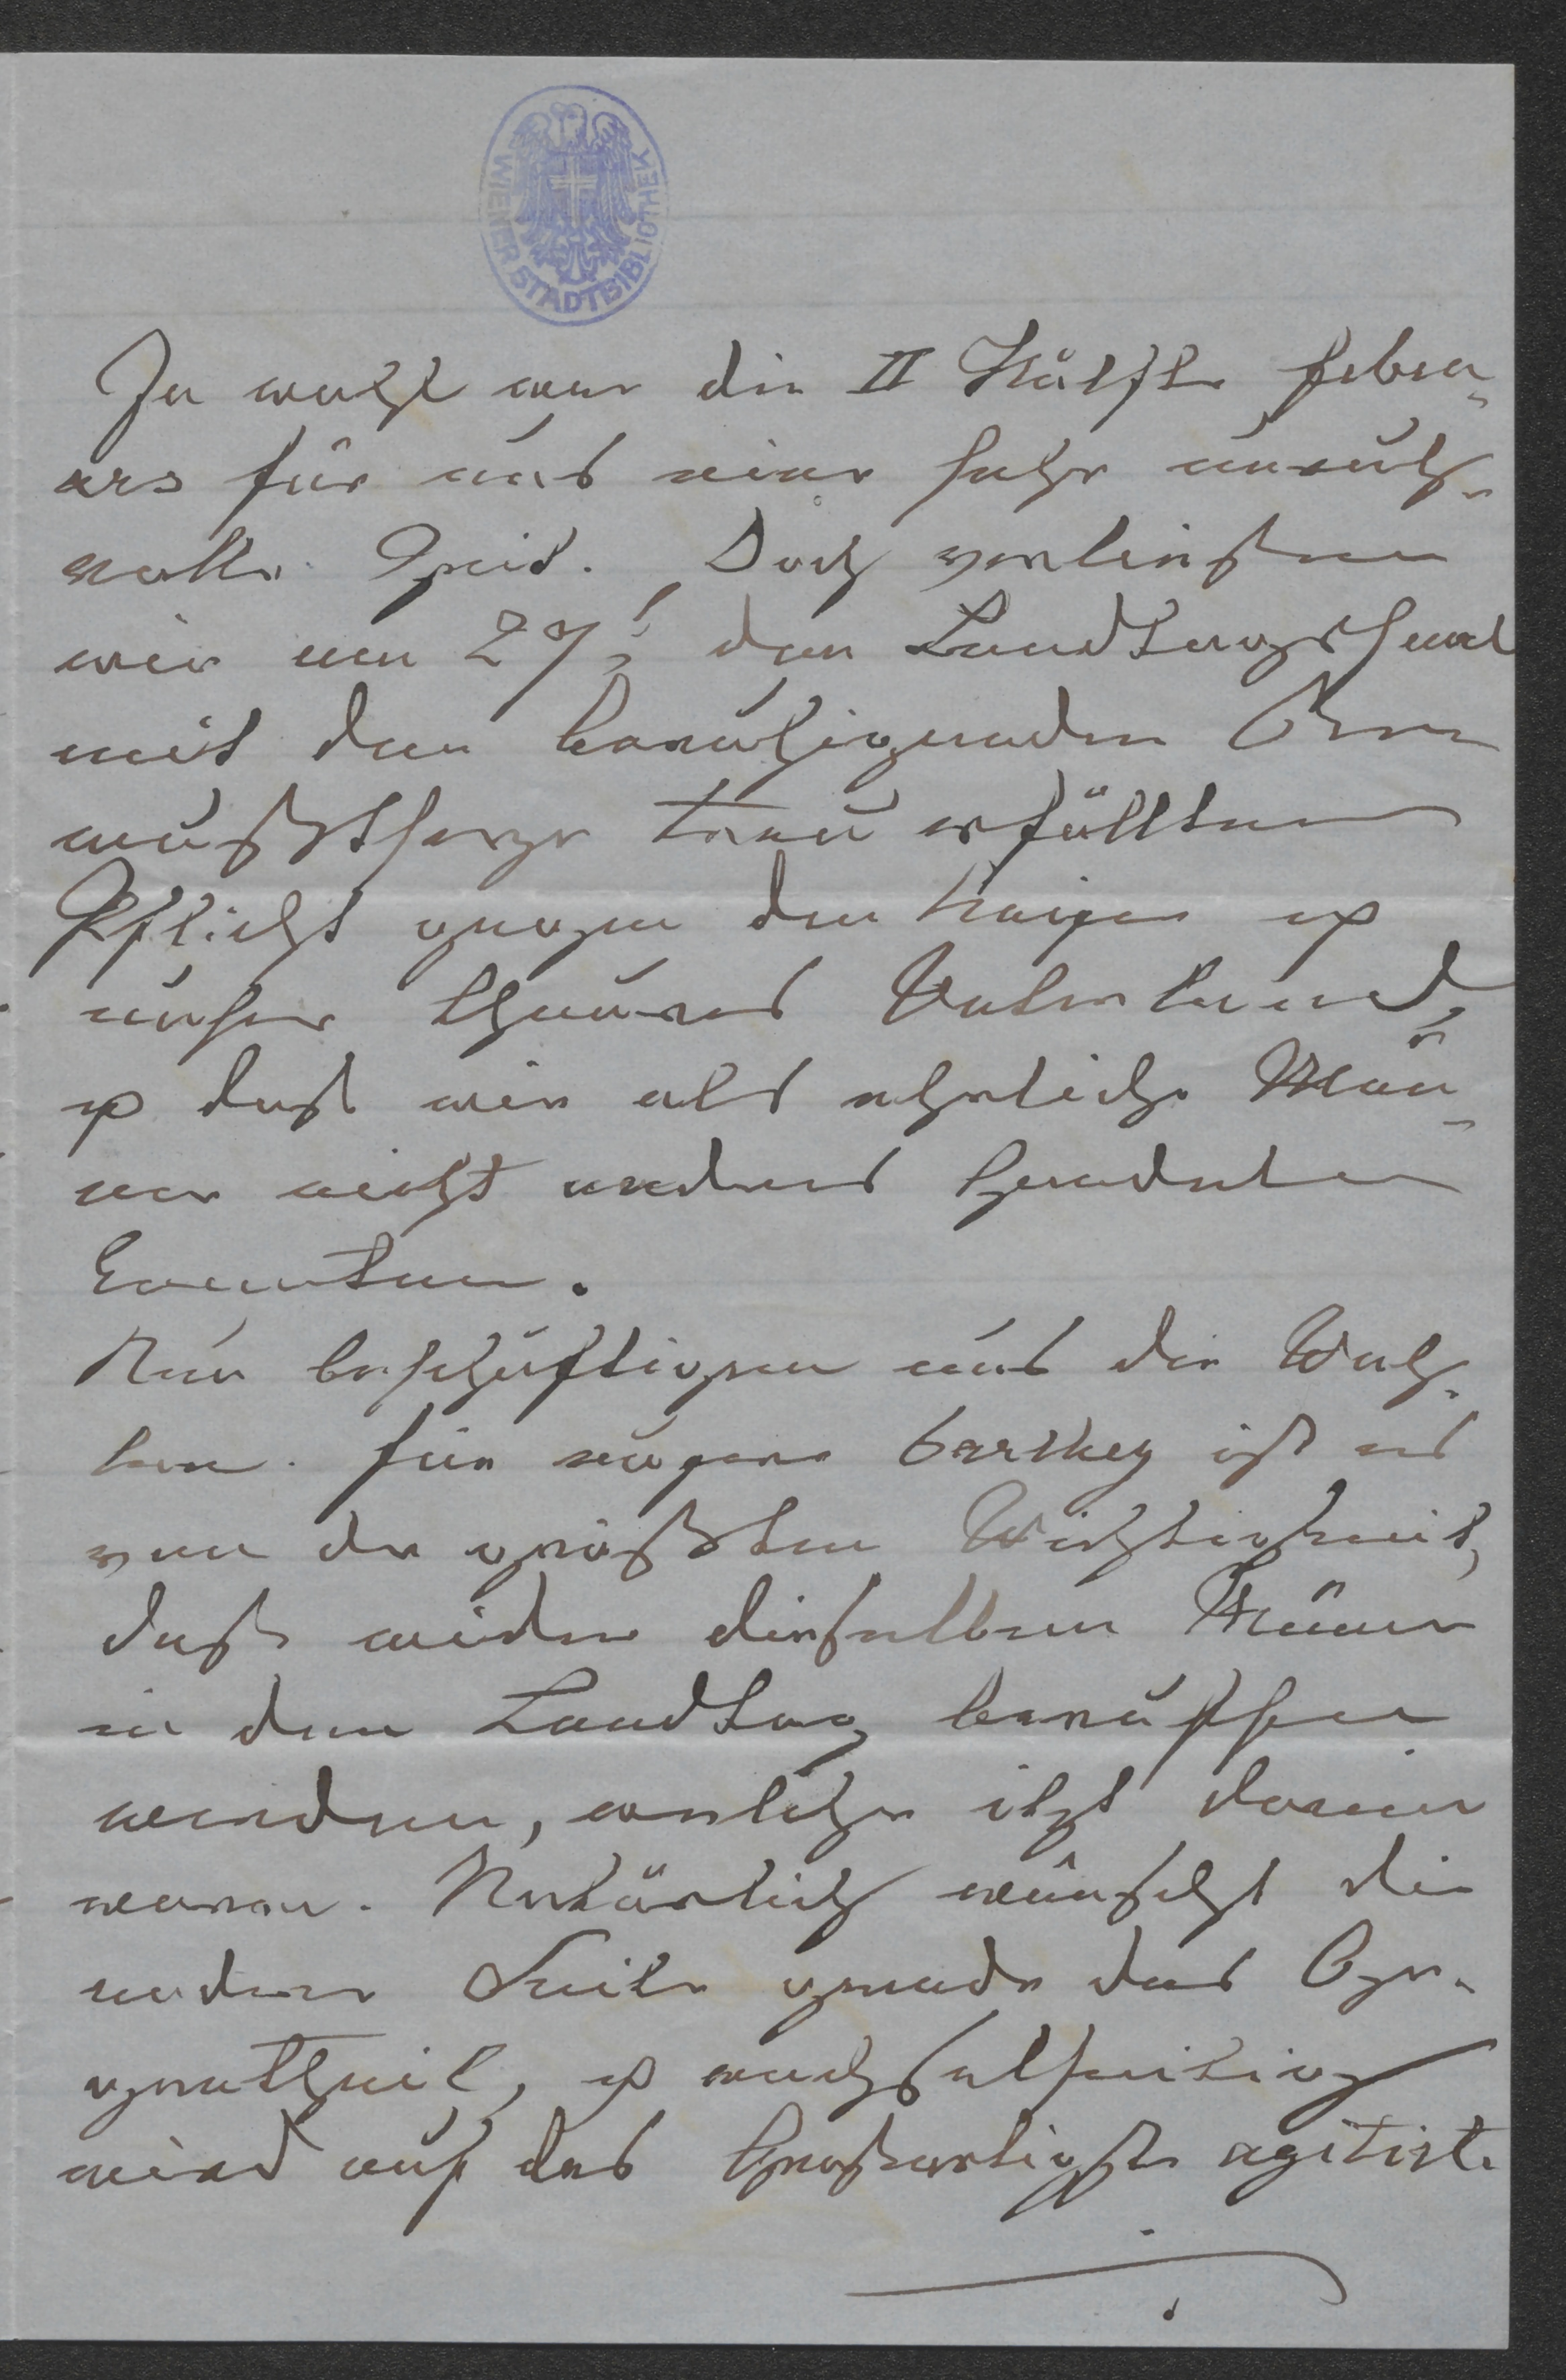 WIENER STADTBIBLIOTHEK
Ja wohl war die II Hälfte Febru-
ars für uns eine sehr unruh-
volle Zeit. Doch verließen
wir am 27t den Landtagssaal
mit dem beruhigenden Be-
wußtsein treu erfüllter
Pflicht gegen den Kaiser u
unser theures Vaterland,
u daß wir als ehrliche Män-
ner nicht anders handeln
konnten.
Nun beschäftigen uns die Wah-
len. Für unsere Parthey ist es
von der größten Wichtigkeit,
daß wieder dieselben Männer
in den Landtag berufen
werden, welche itzt darin
waren. Natürlich wünscht die
andere Seite gerade das Ge-
gentheil, u wechselseitig
wird auf das Großartigste agitirt.